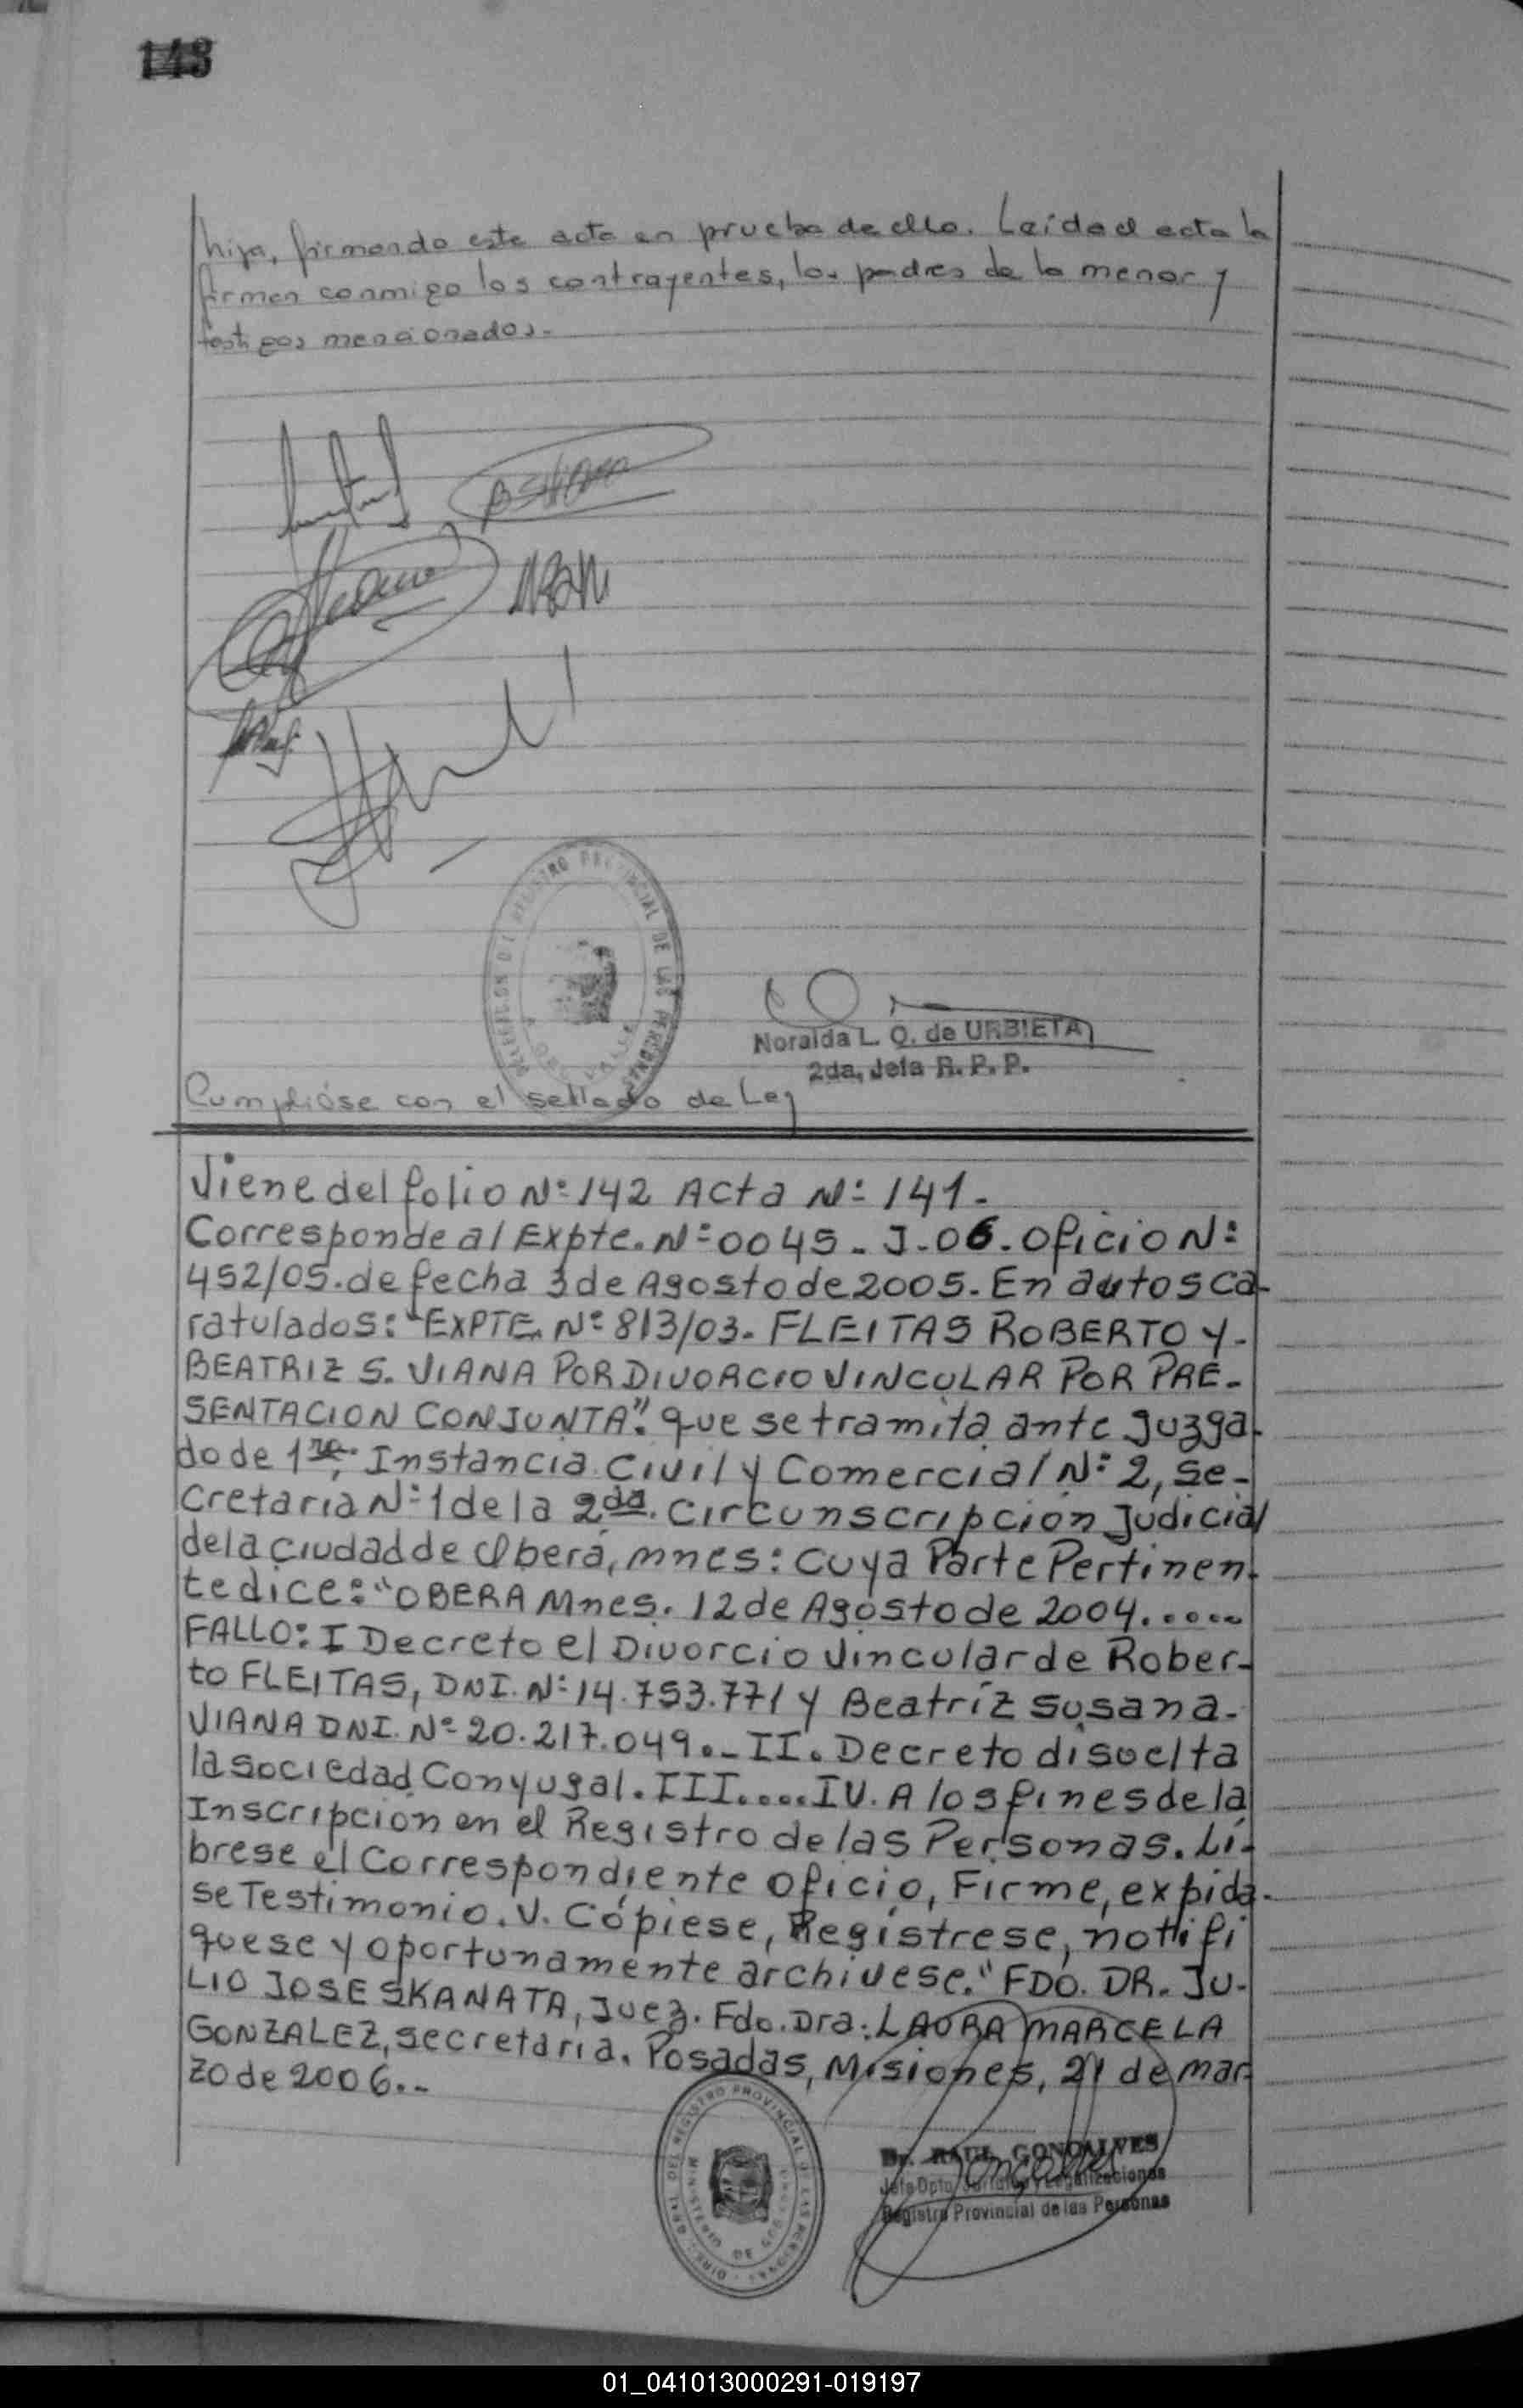 143
hija, firmando este acto en prueba de ello. Leída el acta la
firman conmigo los contrayentes, los padres de la menor y
testigos mencionados.-
DELEGACION DEL REGISTRO PROVINCIAL DE LAS PERSONAS
Noralda L. Q. de URBIETA
2da, Jefa R. P. P.
Cumplióse con el sellado de Ley
Viene del folio Nº 142 Acta Nº 141-
Corresponde al Expte. Nº 0045- J-06- Oficio Nº
452/05. de fecha 3 de Agosto de 2005- En autos ca-
ratulados: "EXPTE. Nº 813/03- FLEITAS ROBERTO Y-
BEATRIZ S. VIANA POR DIVORCIO VINCULAR POR PRE-
SENTACION CONJUNTA". que se tramita ante Juzga-
do de 1ra. Instancia Civil y Comercial Nº 2, Se-
cretaria Nº 1 de la 2da. Circunscripción Judicial
de la ciudad de Oberá, mnes: cuya Parte Pertinen-
te dice: "OBERA Mnes. 12 de Agosto de 2004.....
FALLO: I Decreto el Divorcio Vincular de Rober-
to FLEITAS, DNI. Nº 14.753.771 y Beatríz Susana-
VIANA DNI. Nº 20.217.049.- II. Decreto disuelta
la sociedad Conyugal. III..... IV. A los fines de la
Inscripción en el Registro de las Personas. Lí-
brese el Correspondiente Oficio, Firme, expida-
se Testimonio. V. Cópiese, Regístrese, notifi
quese y oportunamente archivese." FDO. DR. JU-
LIO JOSE SKANATA, Juez. Fdo. Dra. LAURA MARCELA
GONZALEZ, secretaria. Posadas, Misiones, 21 de mar-
zo de 2006..-
DIREC. GRAL. DEL REGISTRO PROVINCIAL DE LAS PERSONAS
Dr. RAUL GONCALVES
Jefe Dpto. Jurídico y Legalizaciones
Registro Provincial de las Personas
01_041013000291-019197